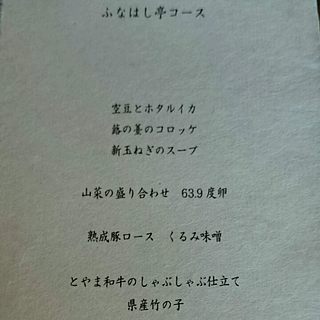 ふなはし亭コース
空豆とホタルイカ
蕗の薹のコロッケ
新玉ねぎのスープ
山菜の盛り合わせ　63.9度卵
熟成豚ロース　くるみ味噌
とやま和牛のしゃぶしゃぶ仕立て
県産竹の子